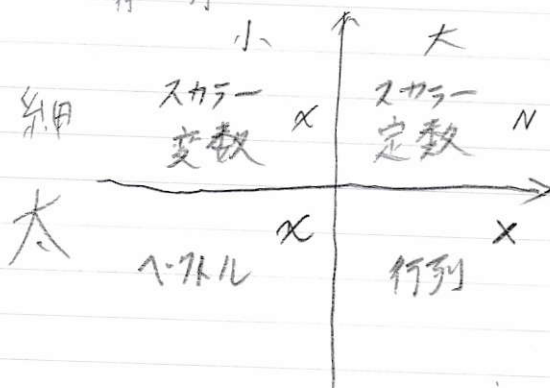 小 大
細 スカラー 変数 x スカラー 定数 N
太 ベクトル x 行列 X